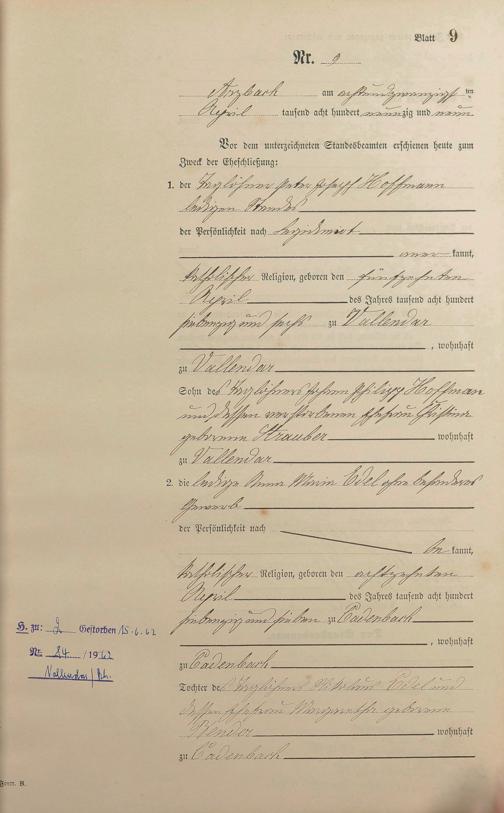 Blatt 9
Nr. 9
Arzbach am achtundzwanzigsten
April tausend acht hundert neunzig und neun
Vor dem unterzeichneten Standesbeamten erschienen heute zum
Zweck der Eheschließung:
1. der Taglöhner Peter Joseph Hoffmann
ledigen Standes
der Persönlichkeit nach legitimirt
aner kannt,
katholischer Religion, geboren den fünfzehnten
April des Jahres tausend acht hundert
siebenzig und sechs zu Vallendar
, wohnhaft
zu Vallendar
Sohn des Taglöhners Johann Philipp Hoffmann
und dessen verstorbenen Ehefrau
geborene Strauber wohnhaft
zu Vallendar
2. die ledige Anna Maria Edel ohne besonderes
Gewerb
der Persönlichkeit nach
be kannt,
katholischer Religion, geboren den achtzehnten
April des Jahres tausend acht hundert
siebenzig und sieben zu Cadenbach
, wohnhaft
zu Cadenbach
Tochter des Taglöhners Nikolaus Edel und
dessen Ehefrau Margaretha geborene
Bender wohnhaft
zu Cadenbach
H. zu: 2 Gestorben 15.6.62
Nr. 24 /1962
Vallendar/Rh.
Form. B.